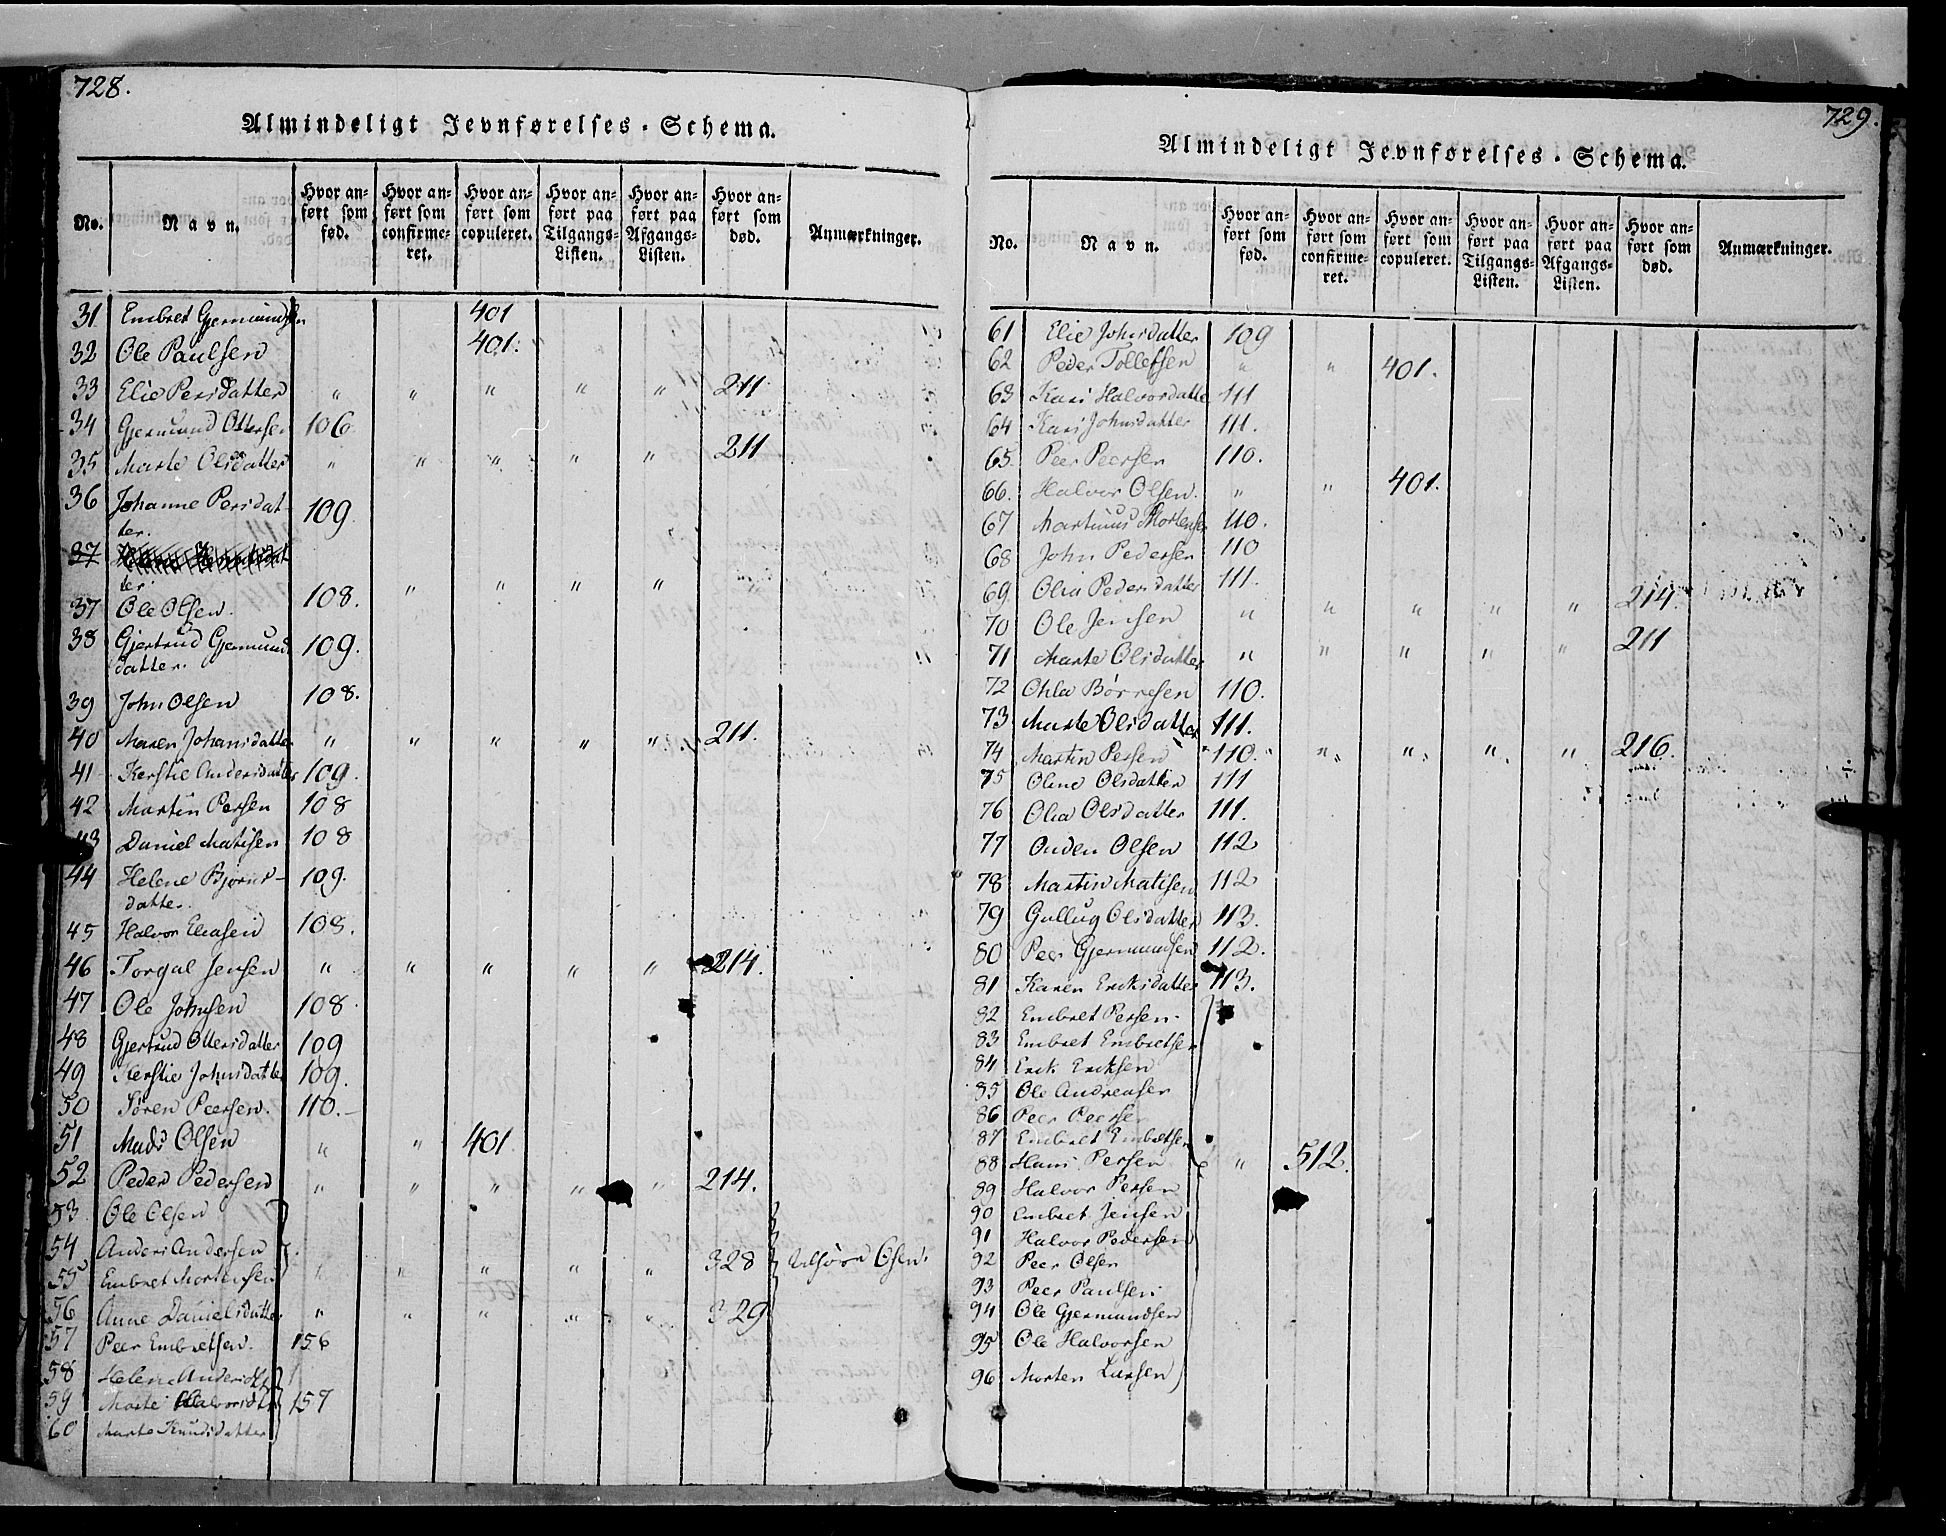 728.
Almindeligt Jevnførelses-Schema.
No. Navn. Hvor anført som fød. Hvor anført som confirmeret. Hvor anført som copuleret. Hvor anført paa Tilgangs-Listen. Hvor anført paa Afgangs-Listen. Hvor anført som død. Anmærkninger.
31 Embret Gjermundsen 401
32 Ole Paulsen 401.
33 Elie Persdatter " " " " " 211
34 Gjermund Ottersen 106
35 Marte Olsdatter " " " " " 211
36 Johanne Persdat- 109.
ter.
37
ter.
37 Ole Olsen. 108. " " " "
38 Gjertrud Gjermunds 109.
datter.
39 John Olsen 108.
40 Maren Johansdatter " " " " " 211.
41 Kerstie Andersdatter 109.
42 Martin Persen 108
43 Daniel Matisen 108
44 Helene Bjørns- 109.
datter.
45 Halvor Eliasen 108.
46 Torgal Jensen " " " " " 214.
47 Ole Johnsen 108
48 Gjertrud Ottersdatter 109
49 Kerstie Johnsdatter 109.
50 Søren Peersen. 110.
51 Mads Olsen " " 401
52 Peder Pedersen " " " " " 214.
53 Ole Olsen
54 Anders Andersen
55 Embret Mortensen " " " " " 328
56 Anne Danielsdatter " " " " " 329
57 Peer Embretsen. 156
58 Helene Andersdtr
59 Marte Halvorsdtr 157
60 Marte Knudsdatter
729.
Almindeligt Jevnførelses-Schema.
No. Navn. Hvor anført som fød. Hvor anført som confirmeret. Hvor anført som copuleret. Hvor anført paa Tilgangs-Listen. Hvor anført paa Afgangs-Listen. Hvor anført som død. Anmærkninger.
61 Elie Johnsdatter 109
62 Peder Tollefsen " " 401.
63 Kari Halvorsdatte 111
64 Kari Johnsdatter 111.
65. Peer Peersen 110.
66. Halvor Olsen. " " 401.
67 Martinus Mortensen 110.
68 John Pedersen 110
69 Olia Pedersdatter 111.
70 Ole Jensen " " " " " 214.
71 Marte Olsdatter " " " " " 211
72 Ohla Børresen 110.
73 Marte Olsdatter 111.
74 Martin Persen 110. " " " " 216.
75 Oline Olsdatter 111
76 Olia Olsdatter 111.
77 Ouden Olsen 112
78 Martin Matisen 112
79 Gullug Olsdatter 113.
80 Peer Gjermundsen 112.
81 Karen Eriksdatter 113.
82 Embret Persen.
83 Embret Embretsen
84 Erik Eriksen
85 Ole Andreasen
86 Peer Peersen
87 Embret Embretsen
88 Hans Persen " 512.
89 Halvor Persen
90 Embret Jensen
91 Halvor Pedersen
92 Peer Olsen
93 Peer Paulsen.
94 Ole Gjermundsen
95 Ole Halvorsen
96 Morten Larsen